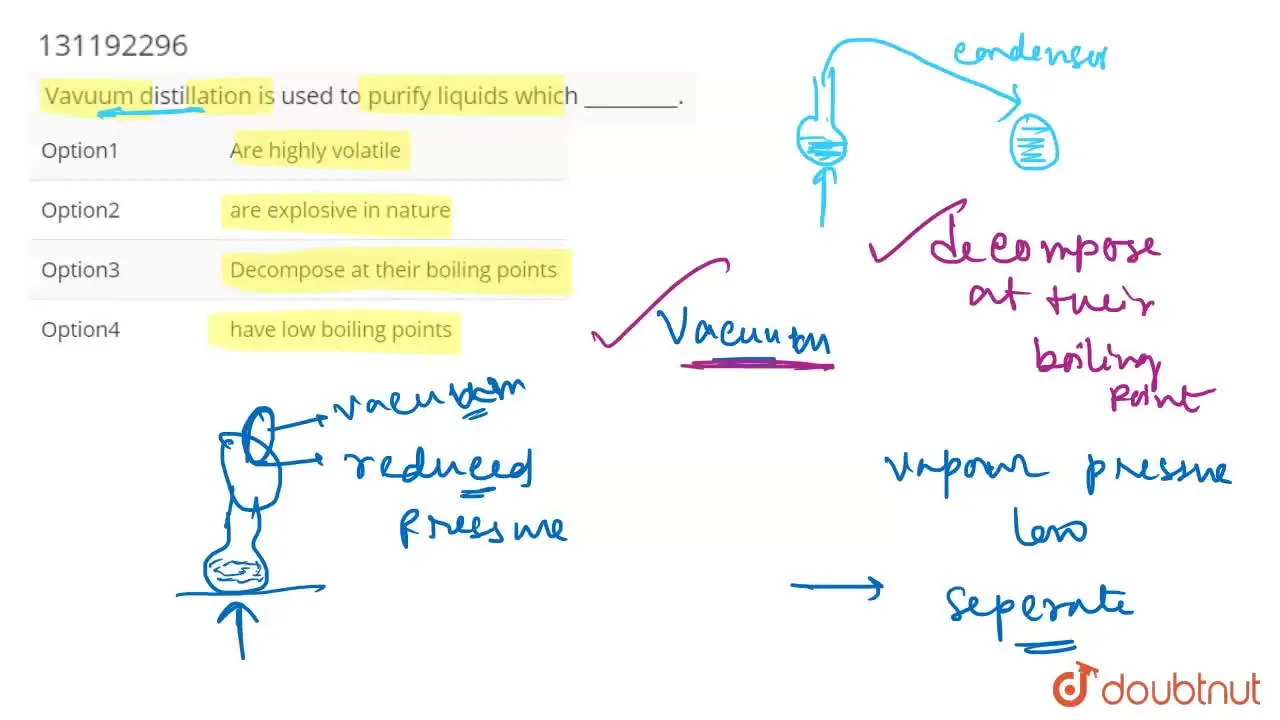 131192296
Vavuum distillation is used to purify liquids which ________.
Option1 Are highly volatile
Option2 are explosive in nature
Option3 Decompose at their boiling points
Option4 have low boiling points
condensor
decompose
at their
boiling
point
Vacuum
vacuum
reduced
pressure
vapour pressure
low
seperate
doubtnut